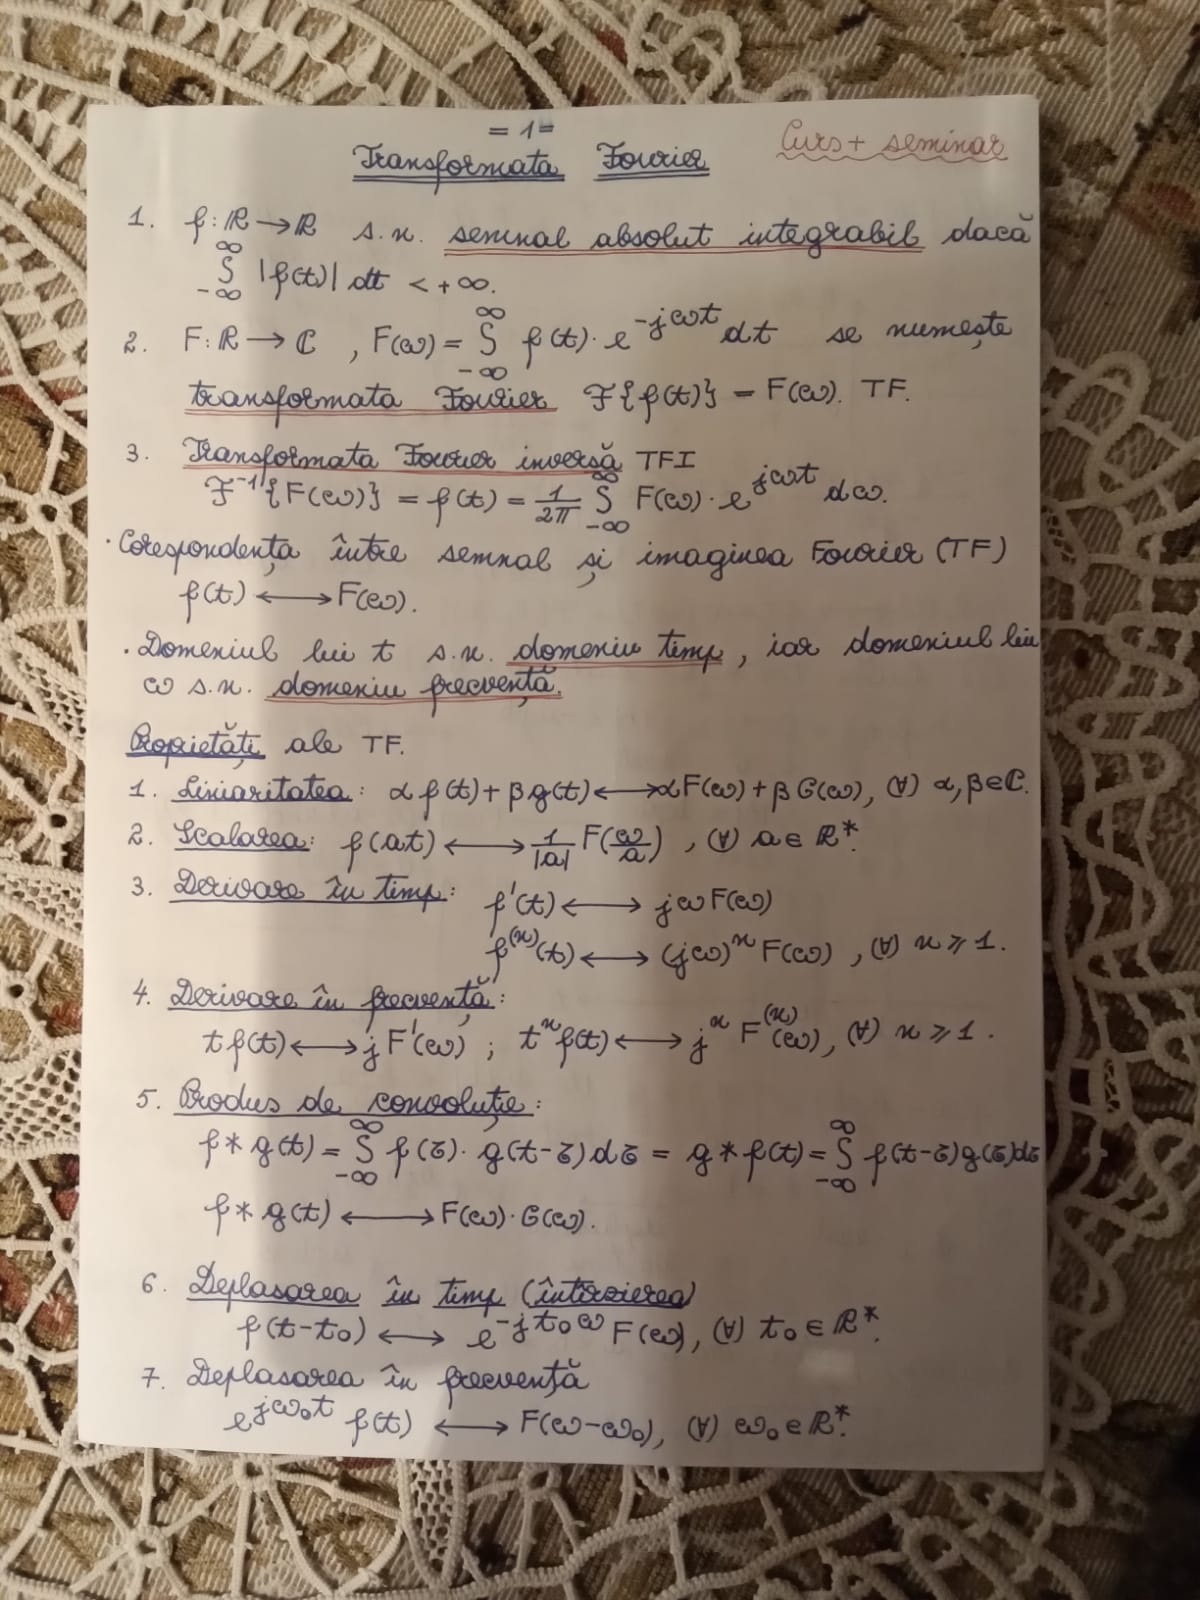 = 1 =
Curs + seminar
Transformata Fourier
1. f: ℝ → ℝ s.n. semnal absolut integrabil dacă
∫_{-∞}^{∞} |f(t)| dt < +∞.
2. F: ℝ → ℂ, F(ω) = ∫_{-∞}^{∞} f(t)· e^{-jωt} dt se numește
transformata Fourier ℱ{f(t)} = F(ω). TF.
3. Transformata Fourier inversă TFI
ℱ^{-1}{F(ω)} = f(t) = 1/2π ∫_{-∞}^{∞} F(ω)· e^{jωt} dω.
· Corespondența între semnal și imaginea Fourier (TF)
f(t) ⟷ F(ω).
· Domeniul lui t s.n. domeniu timp, iar domeniul lui
ω s.n. domeniu frecvență.
Proprietăți ale TF.
1. Liniaritatea: αf(t) + βg(t) ⟷ αF(ω) + βG(ω), (∀) α, β ∈ ℂ.
2. Scalarea: f(at) ⟷ 1/|a| F(ω/a), (∀) a ∈ ℝ*.
3. Derivare în timp: f'(t) ⟷ jωF(ω)
f^{(n)}(t) ⟷ (jω)^n F(ω), (∀) n ⩾ 1.
4. Derivare în frecvență:
t f(t) ⟷ j F'(ω) ; t^n f(t) ⟷ j^n F^{(n)}(ω), (∀) n ⩾ 1.
5. Produs de convoluție:
f * g(t) = ∫_{-∞}^{∞} f(τ)· g(t-τ) dτ = g * f(t) = ∫_{-∞}^{∞} f(t-τ) g(τ) dτ
f * g(t) ⟷ F(ω)· G(ω).
6. Deplasarea în timp (întârzierea)
f(t-t₀) ⟷ e^{-jt₀ω} F(ω), (∀) t₀ ∈ ℝ*.
7. Deplasarea în frecvență
e^{jω₀t} f(t) ⟷ F(ω-ω₀), (∀) ω₀ ∈ ℝ*.